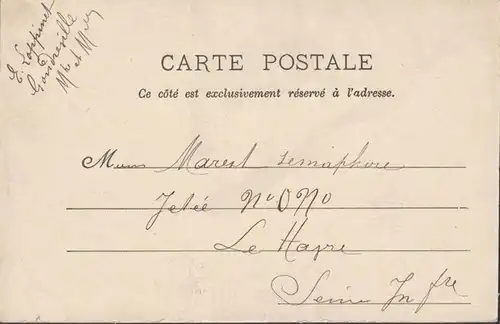 E. Loppinet
Gondreville
Mthe et Mlle
CARTE POSTALE
Ce côté est exclusivement réservé à l'adresse.
Marest Semaphore
Jetée N.O
Le Havre
Seine Infre